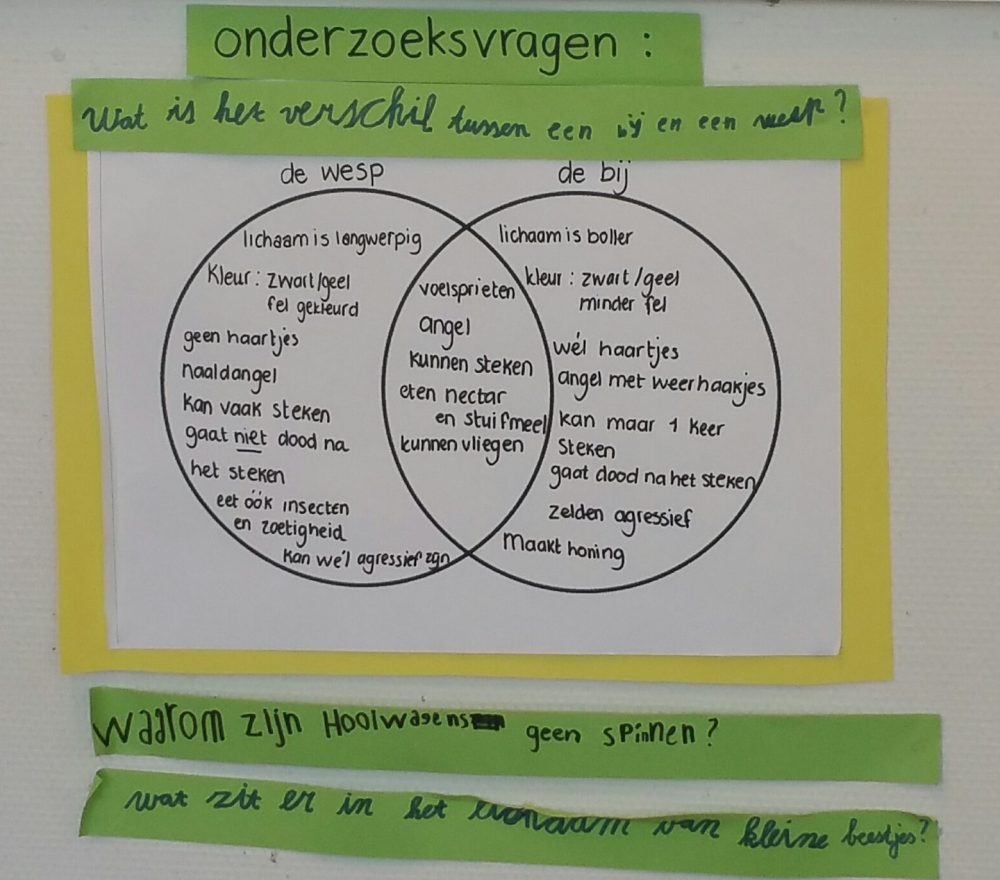 onderzoeksvragen :
Wat is het verschil tussen een bij en een wesp?
de wesp
lichaam is langwerpig
kleur : zwart/geel
fel gekleurd
geen haartjes
naaldangel
kan vaak steken
gaat niet dood na
het steken
eet óók insecten
en zoetigheid
kan wél agressief zijn
voelsprieten
angel
kunnen steken
eten nectar
en stuifmeel
kunnen vliegen
de bij
lichaam is boller
kleur : zwart/geel
minder fel
wél haartjes
angel met weerhaakjes
kan maar 1 keer
steken
gaat dood na het steken
zelden agressief
Maakt honing
Waarom zijn Hooiwagens geen spinnen?
wat zit er in het van kleine beestjes?